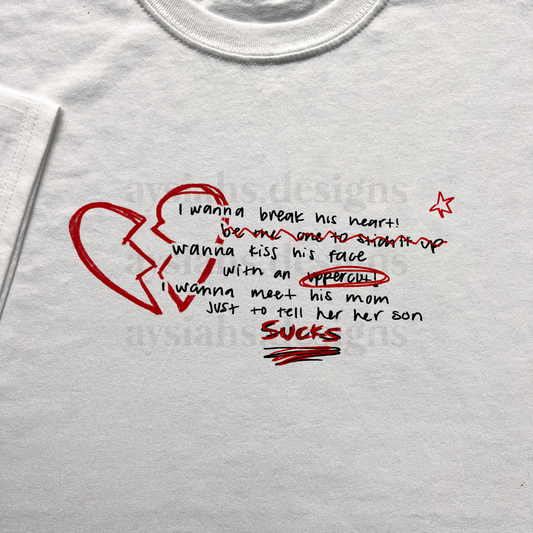 aysiahs designs
I wanna break his heart!
be the one to stich it up
wanna kiss his face
aysiahs designs
with an uppercut!
I wanna meet his mom
Just to tell her her son
aysiahs designs
SUCKS